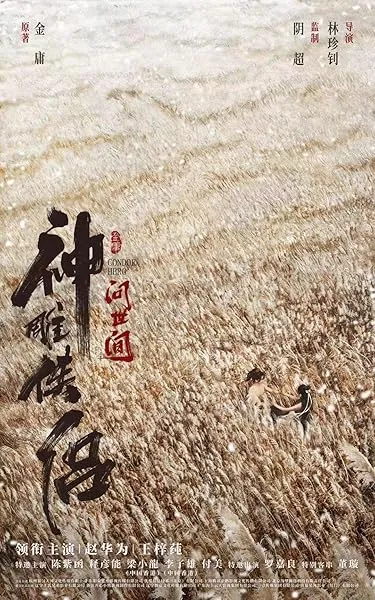 导演
林珍钊
监制
阴超
原著
金庸
神雕侠侣
CONDOR
HERO
问世间
领衔主演|赵华为|王梓莼
特邀主演 陈紫函 释彦能 梁小龙 李子雄 付美 特邀出演 罗嘉良 特别客串 董璇
(中国香港) (中国香港)